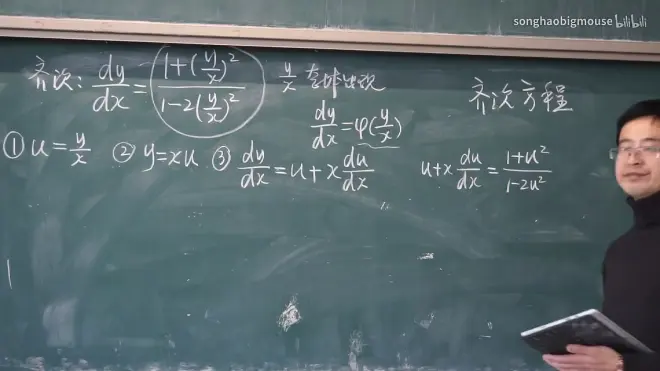 songhaobigmouse bilibili
齐次: dy/dx = (1+(y/x)²)/(1-2(y/x)²)
y/x 整体出现
齐次方程
dy/dx = φ(y/x)
① u = y/x ② y=xu ③ dy/dx = u+x du/dx
u+x du/dx = (1+u²)/(1-2u²)